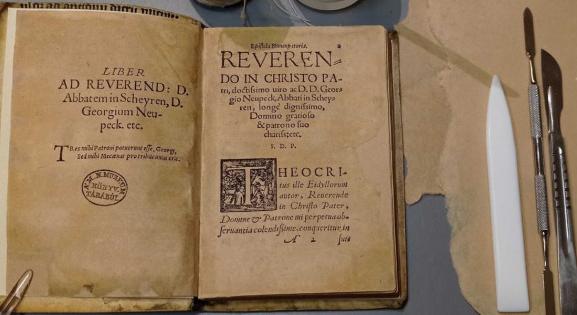 LIBER
AD REVEREND: D.
Abbatem in Scheyren, D.
Georgium Neu-
peck. etc.
TRes mihi Patroni potuerunt esse, Georgi,
Sed mihi Mecœnas pro tribus unus eris.
N. N. MUSEUM
KÖNYV-
TÁRÁBÓL
Epistola Nuncupatoria.
REVEREN=
DO IN CHRISTO PA-
tri, doctissimo uiro ac D. D. Geor-
gio Neupeck, Abbati in Scheys
ren, longè dignissimo,
Domino gratioso
& patrono suo
charissimo.
S. D. P.
THEOCRI-
tus ille Eidyllorum
autor, Reuerende
in Christo Pater,
Domine & Patrone mi perpetua ob-
seruantia colendissime, conqueritur in
A 2 suis